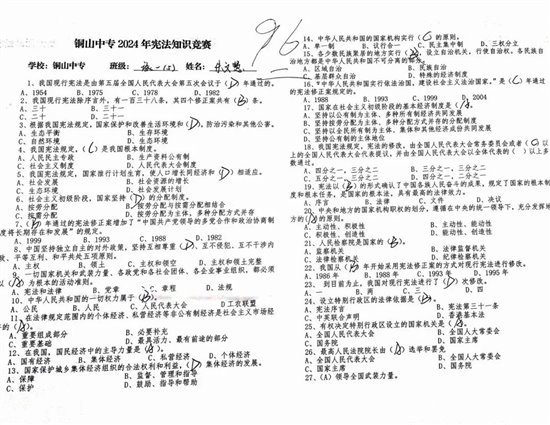 铜山中专 2024 年宪法知识竞赛
96
学校：铜山中专 班级： 姓名：
1、我国现行宪法是由第五届全国人民代表大会第五次会议于（D）年通过的。
A、1954 B、1975 C、1978 D、1982
2、我国宪法除序言外，有一百三十八条，其四个修正案共有（B）条。
A、三十 B、三十一
C、二十 D、二十一
3、根据我国宪法规定，国家保护和改善生活环境和（D），防治污染和其他公害。
A、生态平衡 B、生存环境
C、自然环境 D、生态环境
4、我国宪法规定，（C）是我国根本制度。
A、人民民主专政 B、生产资料公有制
C、社会主义制度 D、人民代表大会制度
5、我国宪法规定，国家推行计划生育，使人口增长同经济和（D）相适应。
A、社会发展 B、社会资源的增长
C、生态环境 D、社会发展计划
6、社会主义初级阶段，国家坚持（D）的分配制度。
A、按劳分配 B、按劳分配与按需分配相结合
C、按需分配 D、按劳分配为主体，多种分配方式并存
7、（B）年通过的宪法修正案增加了“中国共产党领导的多党合作和政治协商制
度将长期存在发展”的规定。
A、1999 B、1993 C、1988 D、1982
8、中国坚持独立自主的对外政策，坚持互相尊重（D）、互不侵犯、互不干涉内
政、平等互利、和平共处五项原则。
A、主权 B、领土 C、主权和领空 D、主权和领土完整
9、一切国家机关和武装力量、各政党和各社会团体、各企业事业组织，都必须
以（A）为根本的活动准则。
A、宪法和法律 B、党章 C、章程 D、法规
10、中华人民共和国的一切权力属于（B）。
A、公民 B、人民 C、人民代表大会 D 工农联盟
11、在法律规定范围内的个体经济、私营经济等非公有制经济是社会主义市场经
济的（A）。
A、重要组成部分 B、必要补充
C、重要基础 D、最具活力、最有前途的部分
12、在我国，国民经济中的主导力量是（A）。
A、国有经济 B、集体经济 C、私营经济 D、个体经济
13、国家保护城乡集体经济组织的合法权利和利益，（D）集体经济的发展。
A、保障 B、监督、管理和指导
C、保护 D、鼓励、指导和帮助
14、中华人民共和国的国家机构实行（C）的原则。
A、单一制 B、议行合一 C、民主集中制 D、三权分立
15、各少数民族聚居的地方实行（B），设立自治机关，行使自治权。各民族自
治地方都是中华人民共和国不可分离的部分。
A、区域自治 B、民族自治
C、基层群众自治 D、特殊的经济制度
16、“中华人民共和国实行依法治国，建设社会主义法治国家。”是（C）年通过
的宪法修正案规定的。
A、1988 B、1993 C、1999 D、2004
17、国家在社会主义初级阶段的基本经济制度是（A）。
A、坚持以公有制为主体、多种所有制经济共同发展
B、坚持按劳分配为主体、多种分配方式并存的分配制度
C、坚持以全民所有制为主体、集体和其他经济成份共同发展
D、坚持公有制的主体地位
18、我国宪法规定，宪法的修改，由全国人民代表大会常务委员会或者（C）以
上的全国人民代表大会代表提议，并由全国人民代表大会以全体代表的（ ）以上多
数通过。
A、四分之一，三分之二 B、三分之一，三分之二
C、五分之一，三分之二 D、四分之一，四分之三
19、宪法以（B）的形式确认了中国各族人民奋斗的成果，规定了国家的根本制
度和根本任务，是国家的根本法，具有最高的法律效力。
A、序言 B、法律 C、文件 D、决议
20、中央和地方的国家机构职权的划分，遵循在中央的统一领导下，充分发挥地
方的（A）的原则。
A、主动性、积极性 B、主动性、能动性
C、积极性、创造性 D、能动性、创造性
21、人民检察院是国家的（B）。
A、监察机关 B、法律监督机关
C、法律检察机关 D、纪律检察机关
22、我国从（B）年开始采用宪法修正案的方式对现行宪法进行修改。
A、1986 年 B、1988 年 C、1993 年 D、1995 年
23、到目前为止，我国对现行宪法进行了（D）次修改。
A、一 B、两 C、三 D、四
24、设立特别行政区的法律依据是（B）。
A、宪法序言 B、宪法第三十一条
C、中英联合声明 D、香港基本法
25、有权决定特别行政区的设立的国家机关是（A）。
A、全国人民代表大会 B、全国人大常委会
C、国务院 D、国家主席
26、最高人民法院院长由（A）选举和罢免
A、全国人民代表大会 B、全国人大常委会
C、国务院 D、国家主席
27、（A）领导全国武装力量。